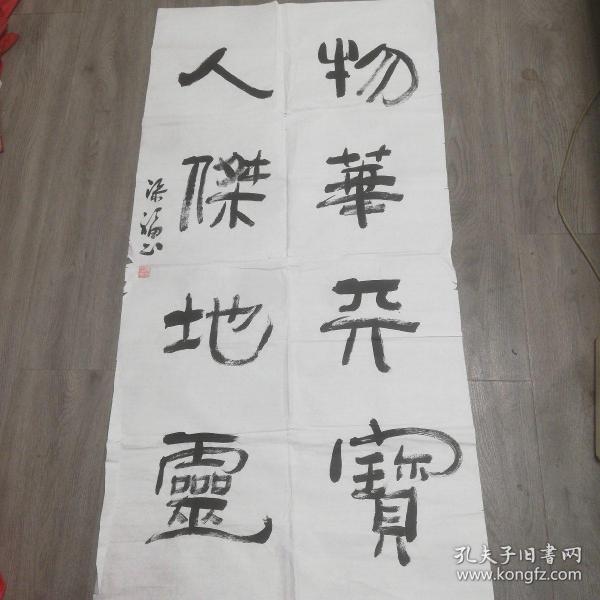 物華天寶
人傑地靈
孔夫子旧書网
www.kongfz.com